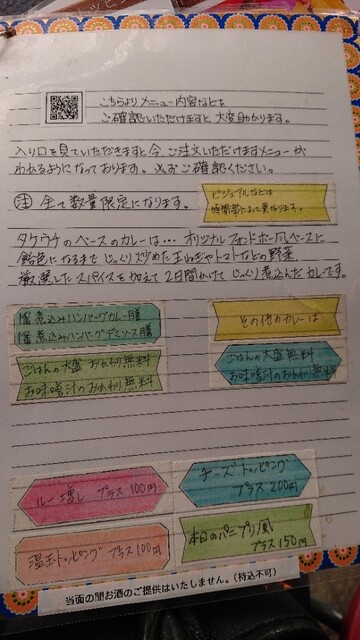 こちらよりメニュー内容などを
ご確認いただけますと大変助かります。
入り口を見ていただきますと今、ご注文いただけますメニューが
わかるようになっております。必ずご確認ください。
注 全て数量限定になります。
ビジュアルなどは
時間帯によって異なります。
タケウチのベースのカレーは… オリジナルフォンドボー風ベースに
飴色になるまでじっくり炒めた玉ねぎやトマトなどの野菜
厳選したスパイスを加えて2日間かけてじっくり煮込んだカレーです。
煮込みハンバーグカレー膳
煮込みハンバーグデミソース膳
その他のカレーは
ごはんの大盛 おかわり無料
お味噌汁のおかわり無料
ごはんの大盛 無料
お味噌汁のおかわり無料
ルー増し プラス100円
チーズトッピング
プラス200円
温玉トッピング プラス100円
本日のパニプリ風
プラス150円
当面の間お酒のご提供はいたしません。(持込不可)